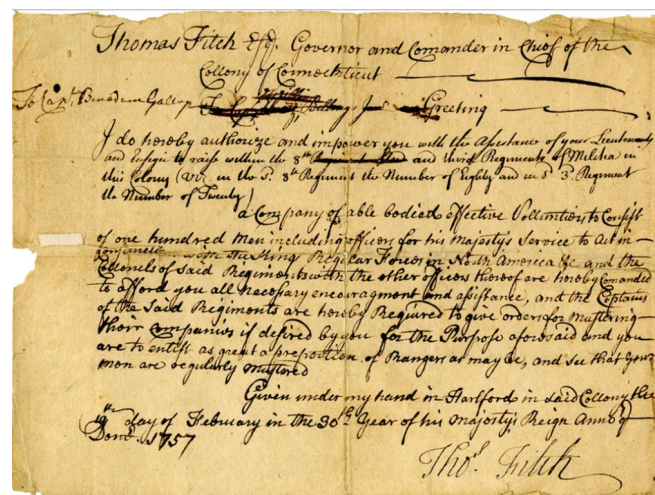 Thomas Fitch Esqr. Governor and Comander in Chief of the
Collony of Connecticut
To Capt. Benadam Gallop Greeting
I do hereby authorize and impower you with the Assistance of your Lieutenants
and Ensign to raise within the 8th and third Regiments of Militia in
this Colony (viz. in the Sd. 8th Regiment the Number of Eighty and in Sd 3d. Regiment
the Number of Twenty)
a Company of able bodied Effective Volluntiers to Consist
of one hundred Men including officers for his Majestys Service to Act in
Conjunction with the King Regular Forces in North America &c and the
Colonels of said Regiments with the other officers thereof are hereby Comanded
to afford you all necessary encouragment and assistance, and the Captains
of the Said Regiments are hereby Required to give orders for Mustering
their Companies if desired by you for the Purpose aforesaid and you
are to enlist as great a preportion of Rangers as may be, and see that your
men are regularly mustered
Given under my hand in Hartford in said Collony the
day of February in the 30th Year of his Majestys Reign Annoq
Domi. 1757
Thos. Fitch